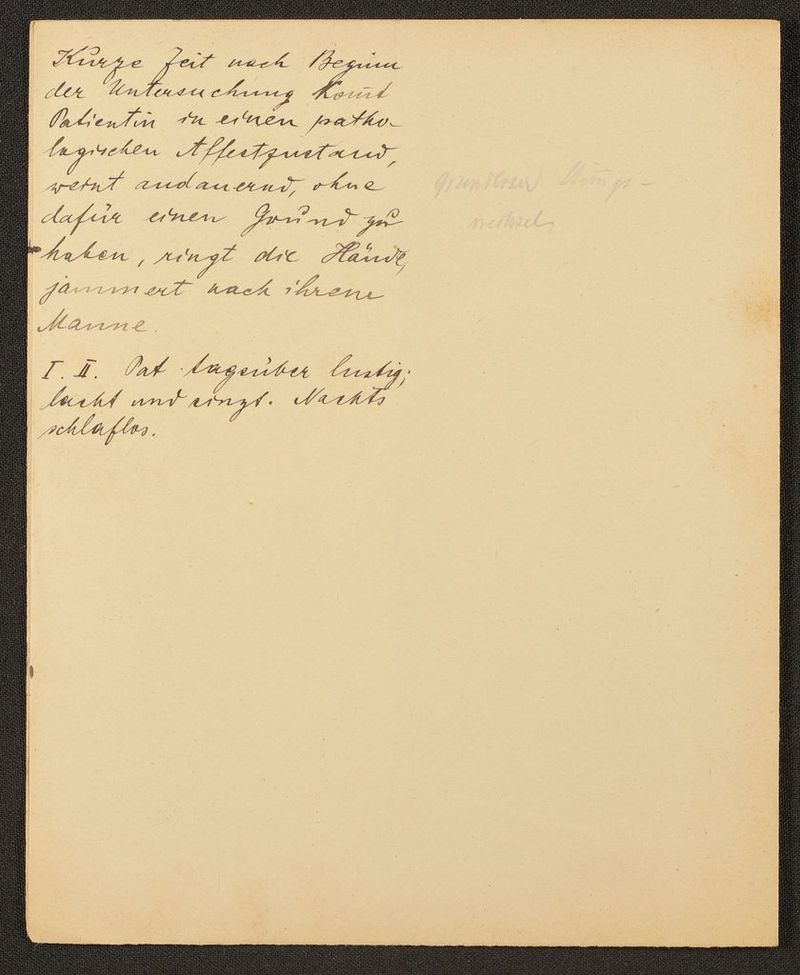 Kurze Zeit nach Beginn
der Untersuchung kom̅t
Patientin in einen patho-
logischen Affectzustand,
weint andauernd, ohne
dafür einen Grund zu
haben, ringt die Hände,
jammert nach ihrem
Manne.
grundloser Stim̅gs-
wechsel
I. II. Pat tagsüber lustig;
lacht und singt. Nachts
schlaflos.